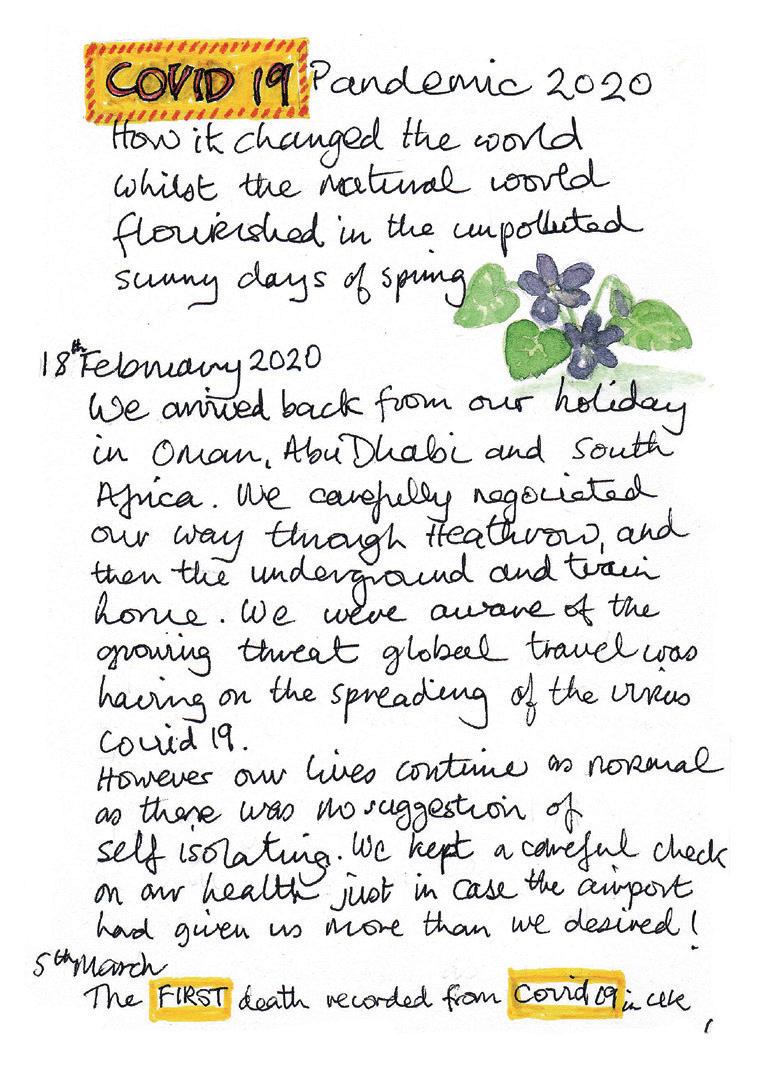 COVID 19 Pandemic 2020
How it changed the world
whilst the natural world
flourished in the unpolluted
sunny days of spring
18th February 2020
We arrived back from our holiday
in Oman, Abu Dhabi and South
Africa. We carefully negociated
our way through Heathrow, and
then the underground and train
home. We were aware of the
growing threat global travel was
having on the spreading of the virus
Covid 19.
However our lives continue as normal
as there was no suggestion of
self isolating. We kept a careful check
on our health just in case the airport
had given us more than we desired!
5th March
The FIRST death recorded from Covid 19 in UK